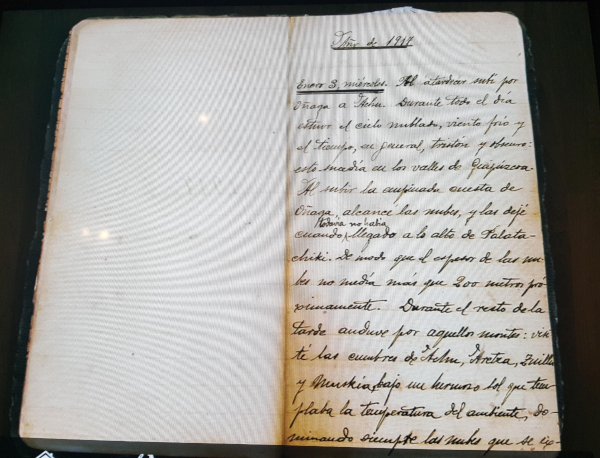 Año de 1917
Enero 3, miércoles. Al atardecer subí por
Oñaga a Aehu. Durante todo el día
estuvo el cielo nublado, viento frío y
el tiempo, en general, tristón y obscuro:
esto en los valles de
Al subir la empinada cuesta de
Oñaga, alcancé las nubes, y las dejé
cuando todavía no había llegado a lo alto de Palata-
chiki. De modo que el espesor de las nu-
bes no medía más que 200 metros pró-
ximamente. Durante el resto de la
tarde anduve por aquellos montes: visi-
té las cumbres de
y bajo un hermoso sol que tem
plaba la temperatura del ambiente, do-
minando siempre las nubes que se ex-